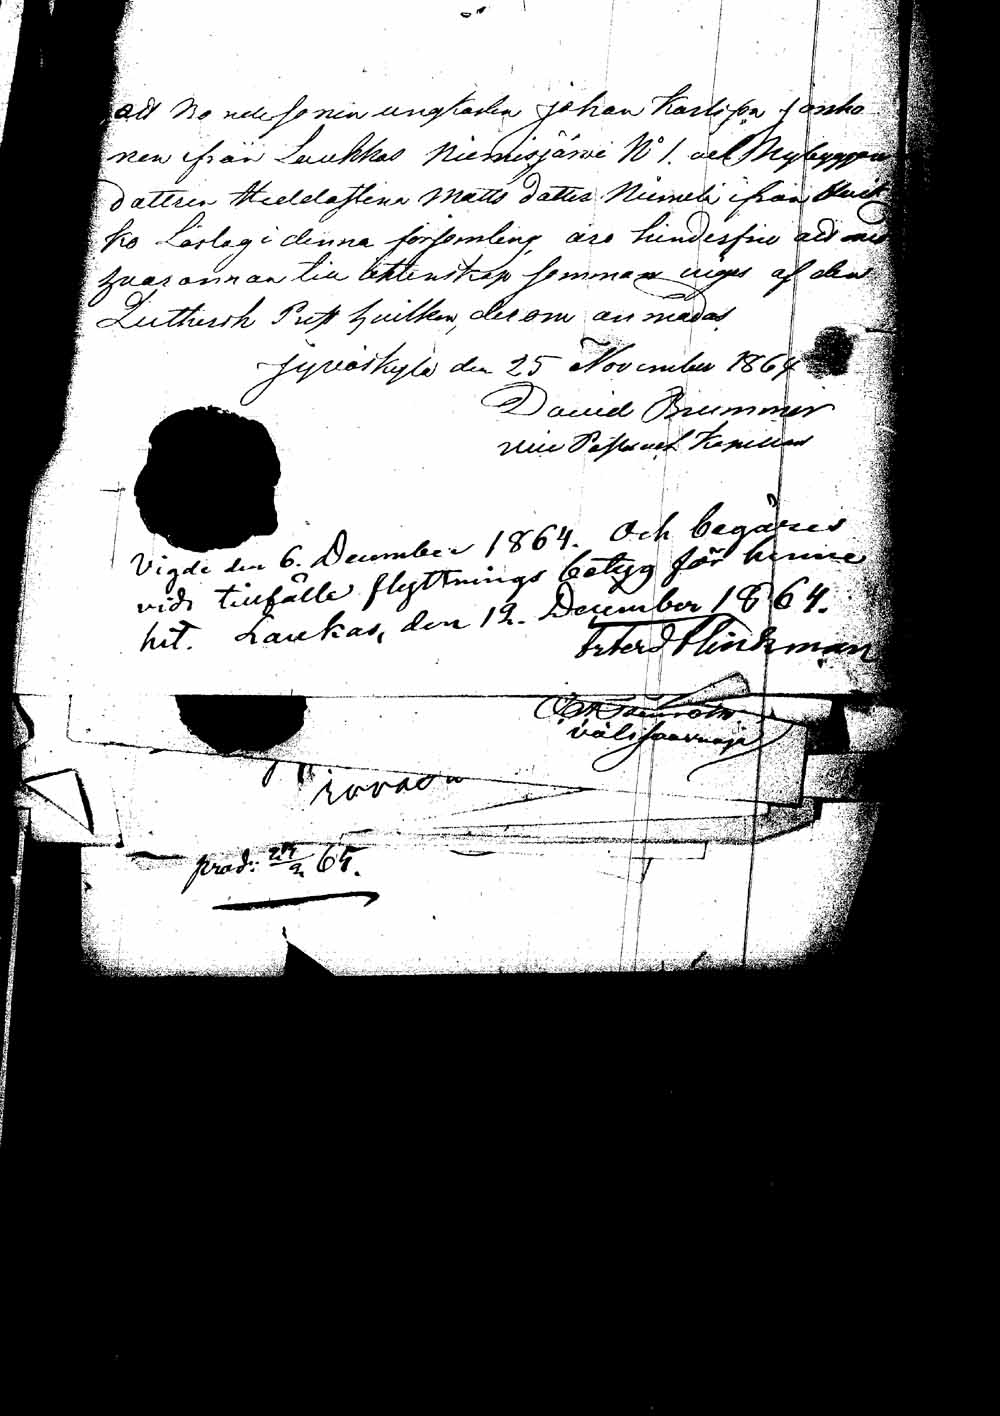 att Bondesonen ungkarlen Johan Karlsson Jonsko
nen ifrån Laukkas Niemisjärvi N° 1. och Nybyggare
dottren Heddastina Matts dotter Niemelä ifrån
ko Läslag i denna församling, äro hindersfrie att med
hvarannan till äktenskap samman viges af den
Luthersk Prest hvilken derom anmodas
Jyväskylä den 25 November 1864
David Brummer
vice Pastor och Kapellan
Vigde den 6. December 1864. Och begäres
vid tillfälle flyttnings betyg för henne
hit. Laukas, den 12. December 1864.
Flinkman
prod: 65.